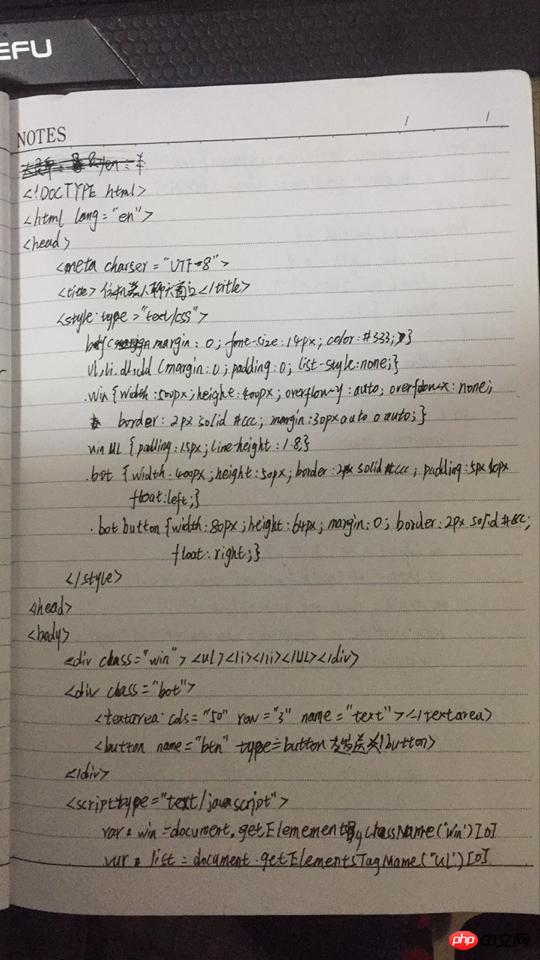 EFU
NOTES
<!DOCTYPE html>
<html lang="en">
<head>
<meta charser="UTF-8">
<title> 机器人聊天</title>
<style type="text/css">
margin: 0; font-size: 14px; color: #333;}
margin: 0; padding: 0; list-style: none;}
.win {width: 500px; height: 400px; overflow-y: auto; overflow-x: none;
border: 2px solid #ccc; margin: 30px auto 0 auto;}
win UL {padding: 15px; line-height: 1.8;}
.bot {width: 400px; height: 50px; border: 2px solid #ccc; padding: 5px
float: left;}
.bot button {width: 80px; height: 64px; margin: 0; border: 2px solid
float: right;}
</style>
<head>
<body>
<div class="win"> <ul><li></li></UL></div>
<div class="bot">
<textarea cols="50" row="3" name="text"></textarea>
<button name="btn" type=button button>
</div>
<script type="text/javascript">
var win = document.getElement ClassName('win')[0]
var list = document.getElementsTagName("Ul")[0]
php 中文网